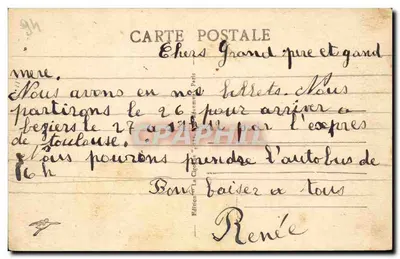 94
CARTE POSTALE
Chers Grand pere et gand
mere.
Nous avons eu nos billets. Nous
partirons le 26 pour arriver a
beziers le 27 a 17 par l'expres
de toulouse.
Nous pourons prendre l'autobus de
16h
Bons baiser a tous
Renée